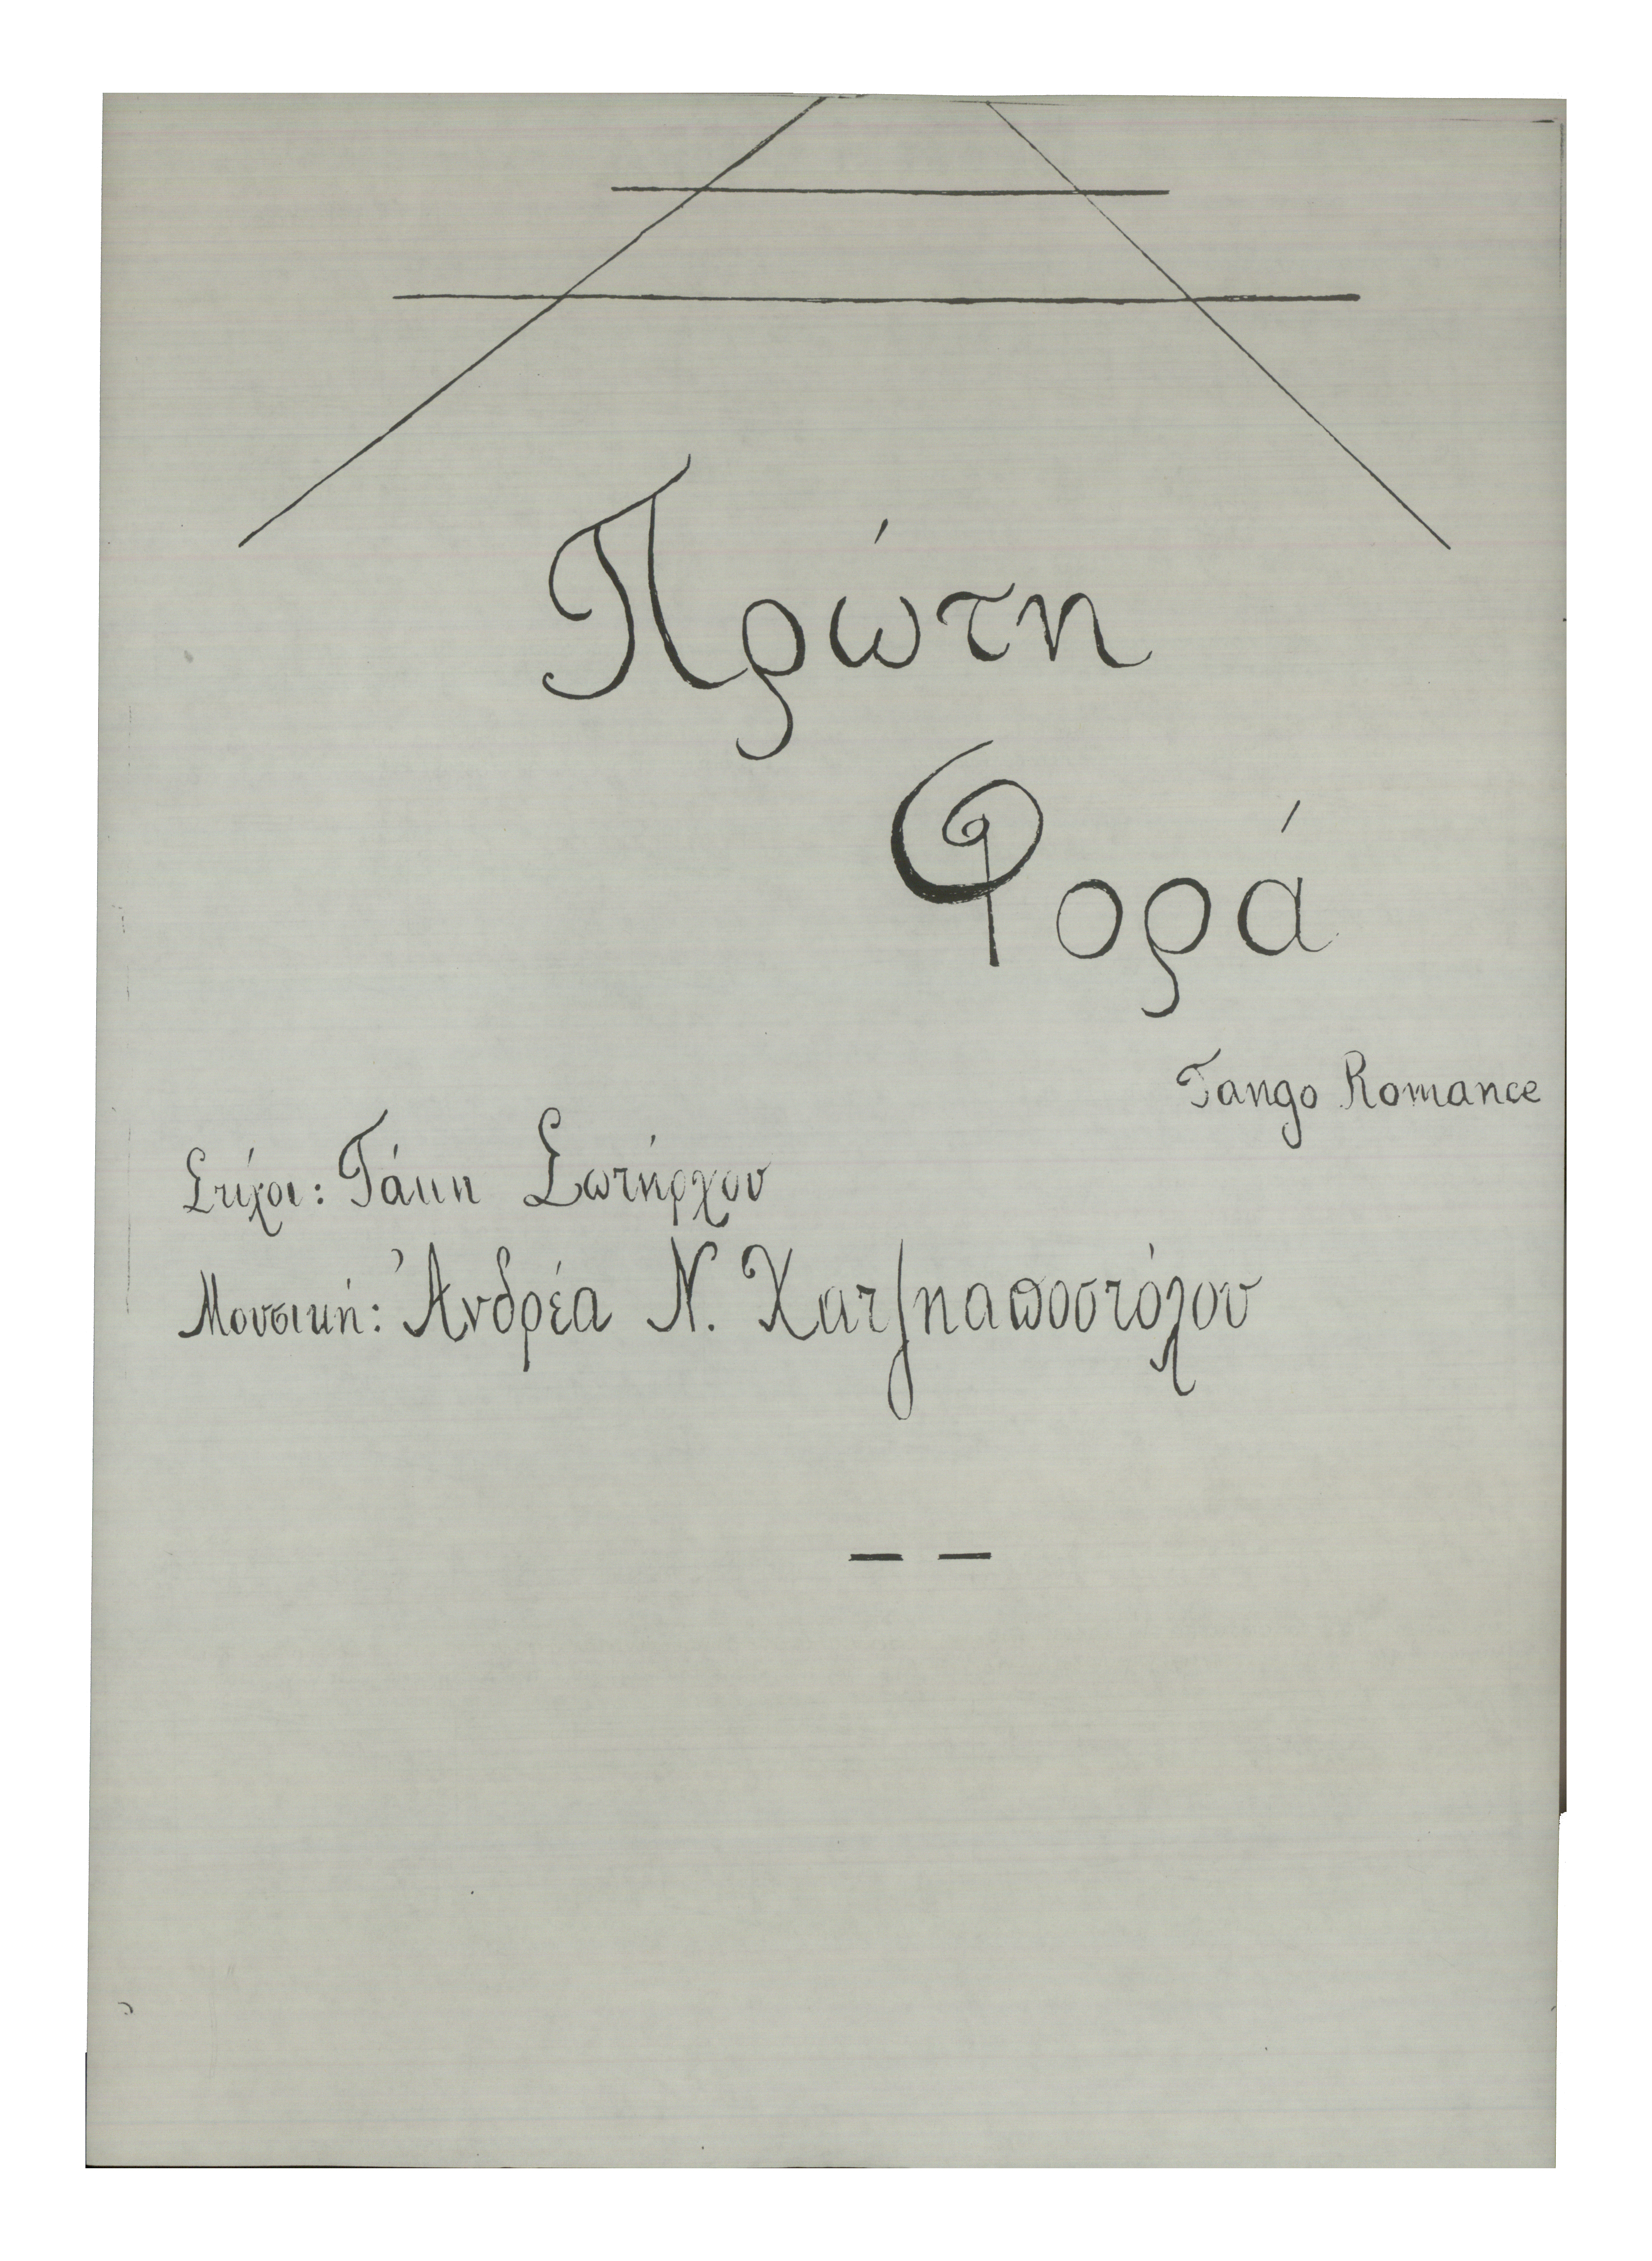 Πρώτη
Φορά
Tango Romance
Στίχοι: Τάκη Σωτήρχου
Μουσική: Ἀνδρέα Ν. Χατζηαποστόλου